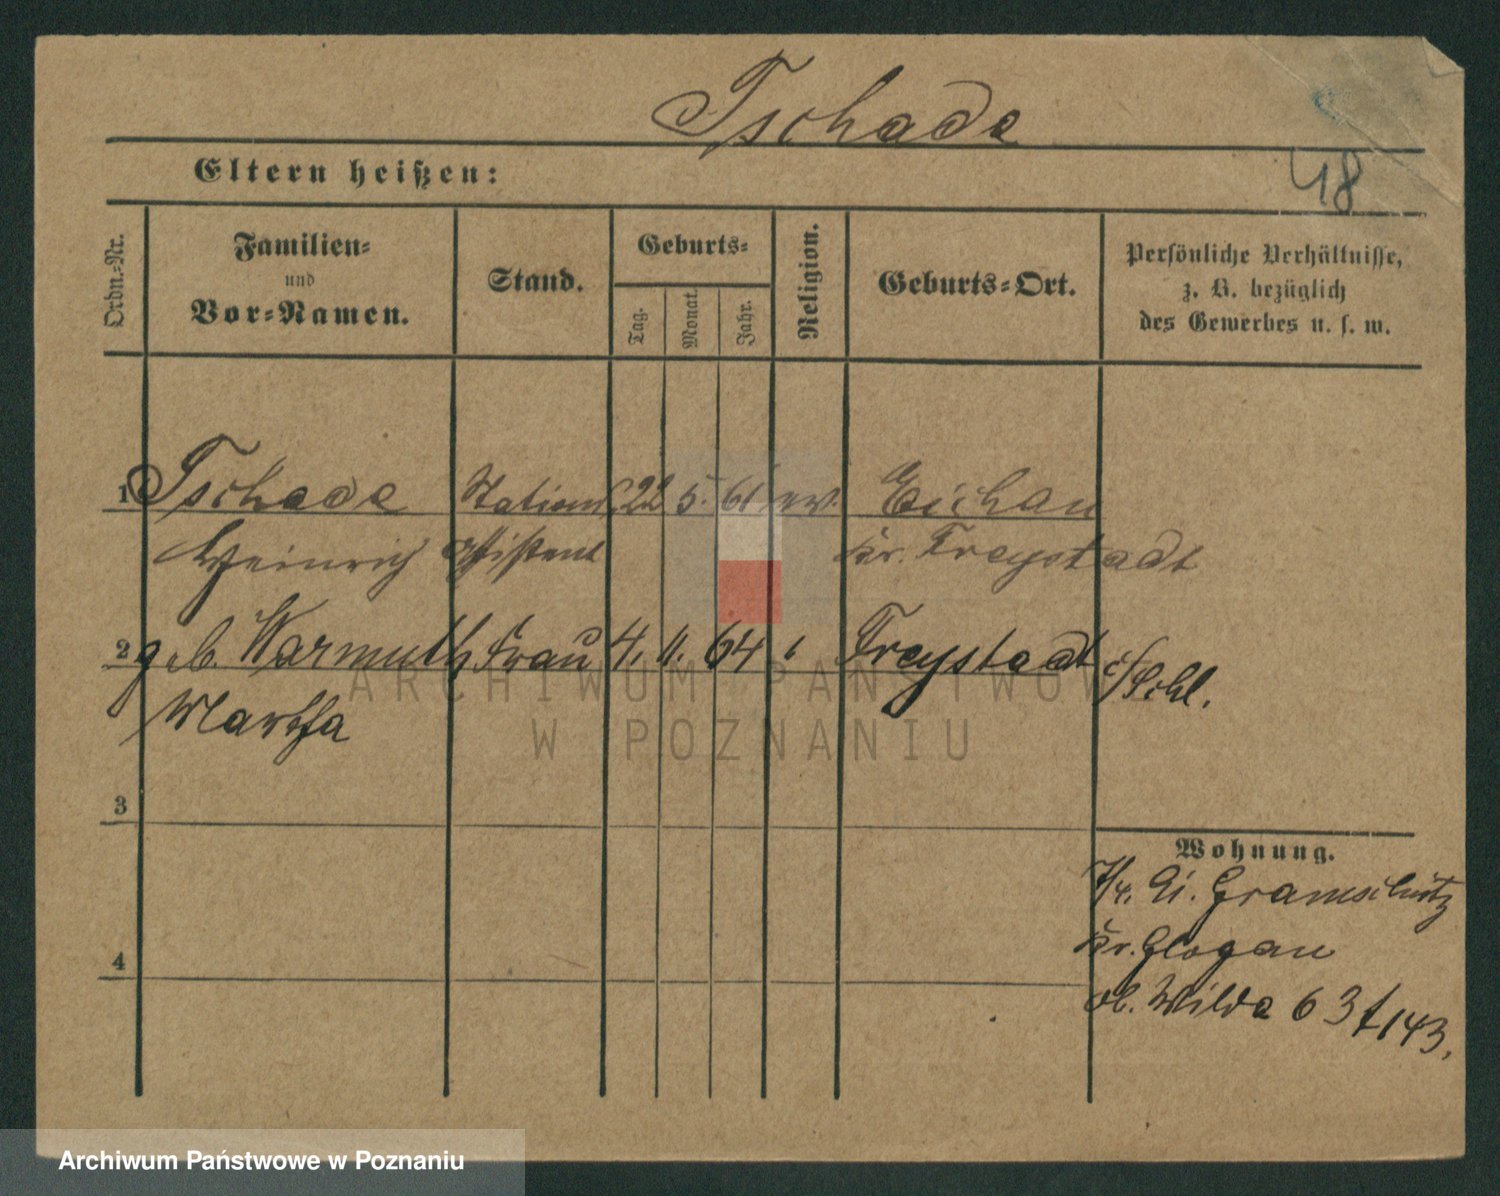 Tschade
Eltern heißen:
48
Ordn.-Nr.
Familien-
und
Vor-Namen.
Stand.
Geburts-
Tag.
Monat.
Jahr.
Religion.
Geburts-Ort.
Persönliche Verhältnisse,
z. B. bezüglich
des Gewerbes u. s. w.
1 Tschade Stations 22 5. 61 ev. Eichau
Heinrich Assistent Kr. Freystadt
2 geb. Warmuth Frau 4. 11. 64 Freystadt /Schl.
Martha
ARCHIWUM PAŃSTWOWE
W POZNANIU
3
Wohnung.
Gramschütz
4
Kr. Glogau
ob. Wilda 63 143.
Archiwum Państwowe w Poznaniu